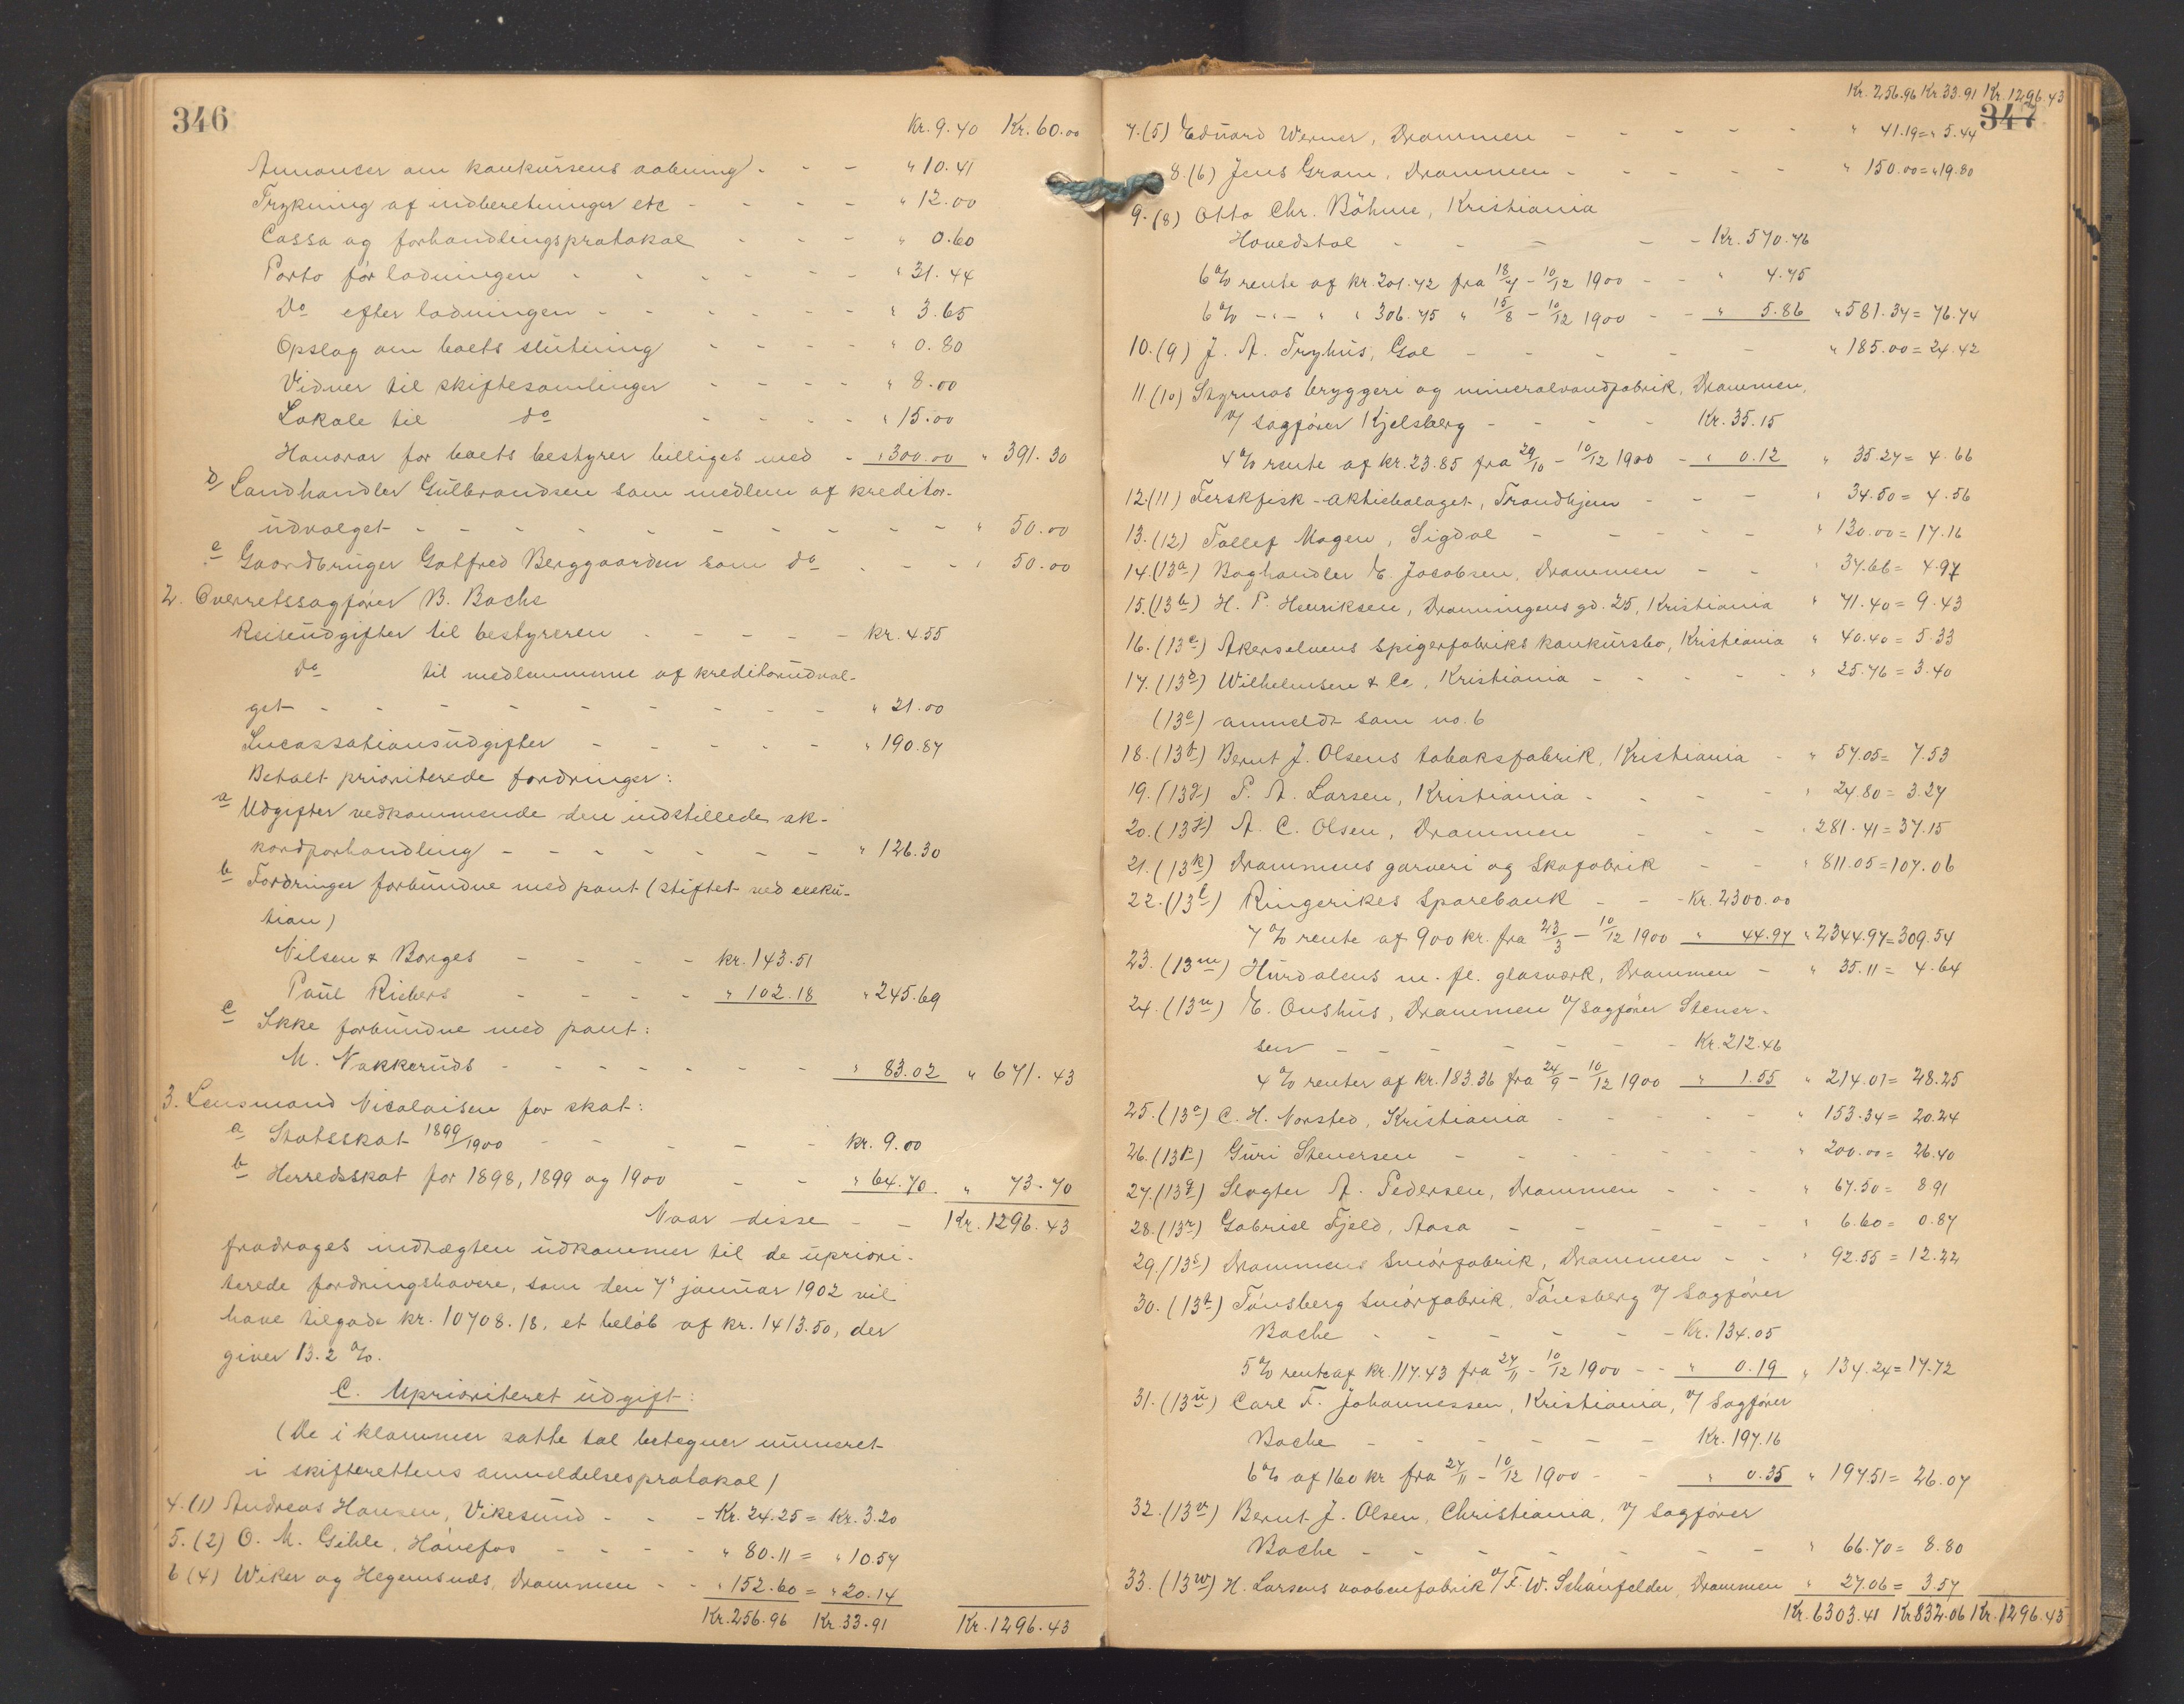 346
Kr. 9.40 Kr. 60.00
Annoncer om konkursens aabning - - - " 10.41
Trykning af indberetninger etc - - - - " 12.00
Cassa og forhandlingsprotokol - - - " 0.60
Porto før ladningen - - - - - " 31.44
Do efter ladningen - - - - - " 3.65
Opslag om boets slutning - - - - " 0.80
Vidner til skiftesamlinger - - - - " 8.00
Lokale til do - - - - " 15.00
Honorar for boets bestyrer billiges med - " 300.00 " 391.30
d Landhandler Gulbrandsen som medlem af kreditor-
udvalget - - - - - - - - - - " 50.00
e Gaardbruger Gotfred Berggaarden som do - - - " 50.00
2. Overretssagfører B. Bachs
Reiseudgifter til bestyreren - - - - - kr. 4.55
do til medlemmerne af kreditorudval-
get - - - - - - - - - " 21.00
Incassationsudgifter - - - - - " 190.87
Betalt prioriterede fordringer:
a Udgifter vedkommende den indstillede ak-
kordforhandling - - - - - - - " 126.30
b Fordringer forbundne med pant (stiftet ved exeku-
tion)
Nilsen & Borges - - - - kr. 143.51
Paul Richers - - - - " 102.18 " 245.69
c Ikke forbundne med pant:
M. Nakkeruds - - - - - - - " 83.02 " 671.43
3. Lensmand Nicolaisen for skat:
a Statsskat 1899/1900 - - - - - kr. 9.00
b Herredsskat for 1898, 1899 og 1900 - - " 64.70 " 73.70
Naar disse - - Kr. 1296.43
fradrages indtægten udkommer til de upriori-
terede fordringshavere, som den 7de januar 1902 vil
have tilgode kr. 10708.18, et beløb af kr. 1413.50, der
giver 13.2 %.
C. Uprioriteret udgift:
(De i klammer satte tal betegner numeret
i skifterettens anmeldelsesprotokol)
4. (1) Andreas Hansen, Vikesund - - - Kr. 24.25 = Kr. 3.20
5. (2) O. M. Gihle, Hønefos - - - - " 80.11 = " 10.57
6 (4) Wiker og Hegemsnæs, Drammen - - " 152.60 = " 20.14
Kr. 256.96 Kr. 33.91 Kr. 1296.43
Kr. 256.96 Kr. 33.91 Kr. 1296.43
347
7. (5) Eduard Werner, Drammen - - - - - " 41.19 = " 5.44
8. (6) Jens Gram, Drammen - - - - - " 150.00 = " 19.80
9. (8) Otto Chr. Böhme, Kristiania
Hovedstol - - - - - Kr. 570.76
6 % rente af kr. 201.42 fra 18/7 - 10/12 1900 - - " 4.75
6 % - " - " " 306.75 " 15/8 - 10/12 1900 - - " 5.86 " 581.37 = 76.74
10. (9) J. A. Tryhus, Gol - - - - - " 185.00 = 24.42
11. (10) Styrmos bryggeri og mineralvandfabrik, Drammen,
v/ sagfører Kjelsberg - - - - Kr. 35.15
4 % rente af kr. 23.85 fra 29/10 - 10/12 1900 - " 0.12 " 35.27 = 4.66
12. (11) Ferskfisk-aktiebolaget, Trondhjem - - - " 34.50 = 4.56
13. (12) Tollef Mogen, Sigdal - - - - - " 130.00 = 17.16
14. (13a) Boghandler E. Jacobsen, Drammen - - " 37.66 = 4.97
15. (13b) H. P. Henriksen, Dronningens gd. 25, Kristiania " 71.40 = 9.43
16. (13c) Akerselvens spigerfabriks konkursbo, Kristiania " 40.40 = 5.33
17. (13d) Wilhelmsen & Co, Kristiania - - - - - " 25.76 = 3.40
(13e) anmeldt som no. 6
18. (13f) Bernt J. Olsens tobaksfabrik, Kristiania - " 57.05 = 7.53
19. (13g) P. A. Larsen, Kristiania - - - - " 24.80 = 3.27
20. (13j) A. C. Olsen, Drammen - - - " 281.41 = 37.15
21. (13k) Drammens garveri og Skofabrik - - " 811.05 = 107.06
22. (13l) Ringerikes Sparebank - - - Kr. 2300.00
7 % rente af 900 kr. fra 23/3 - 10/12 1900 " 44.97 " 2344.97 = 309.54
23. (13m) Hurdalens m. fl. glasværk, Drammen - " 35.11 = 4.64
24. (13n) E. Onshus, Drammen v/ sagfører Stener-
sen - - - - - - - Kr. 212.46
4 % renter af kr. 183.36 fra 24/9 - 10/12 1900 " 1.55 " 214.01 = 28.25
25. (13o) C. H. Norsted, Kristiania - - - - - " 153.34 = 20.24
26. (13p) Guri Stenersen - - - - - - - " 200.00 = 26.40
27. (13q) Slagter A. Pedersen, Drammen - - - " 67.50 = 8.91
28. (13r) Gabriel Fjeld, Aasa - - - - - - " 6.60 = 0.87
29. (13s) Drammens Smørfabrik, Drammen - - " 92.55 = 12.22
30. (13t) Tønsberg Smørfabrik, Tønsberg v/ sagfører
Bache - - - - - - Kr. 134.05
5 % rente af kr. 117.43 fra 27/11 - 10/12 1900 - - " 0.19 " 134.24 = 17.72
31. (13u) Carl F. Johannessen, Kristiania, v/ sagfører
Bache - - - - - - Kr. 197.16
6 % af 160 kr fra 27/11 - 10/12 1900 - - " 0.35 " 197.51 = 26.07
32. (13v) Bernt J. Olsen, Christiania, v/ sagfører
Bache - - - - - - - - " 66.70 = 8.80
33. (13w) H. Larsens vaabenfabrik v/ F. W. Schønfelder, Drammen " 27.06 = 3.57
Kr. 6303.41 Kr 832.06 Kr. 1296.43